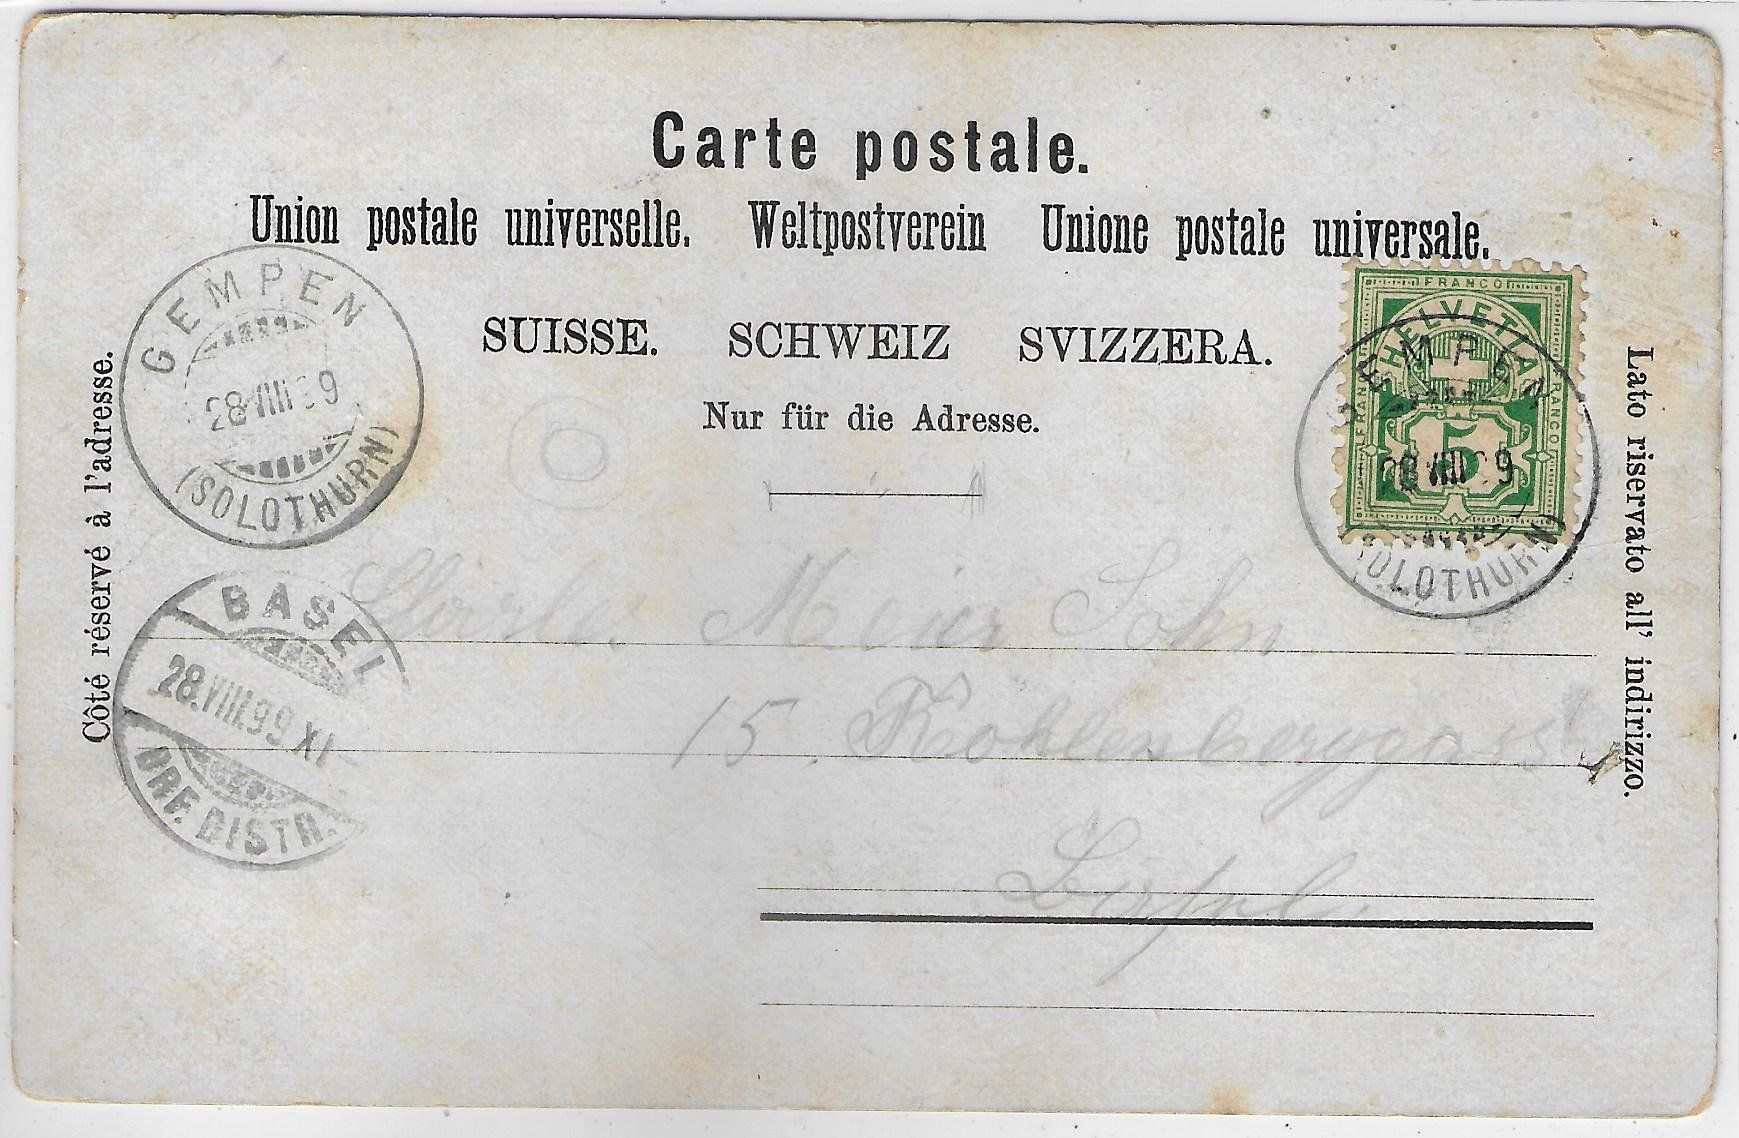 Carte postale.
Union postale universelle. Weltpostverein Unione postale universale.
SUISSE. SCHWEIZ SVIZZERA.
Nur für die Adresse.
Côté réservé à l'adresse.
Lato riservato all' indirizzo.
GEMPEN
28 VIII 99
(SOLOTHURN)
FRANCO
FRANCO
FRANCO
HELVETIA
5
GEMPEN
28 VIII 99
(SOLOTHURN)
BASEL
28.VIII.99 XI
BRF. DISTR.
Charles Meier Sohn
15. Kohlenberggasse
Basel.